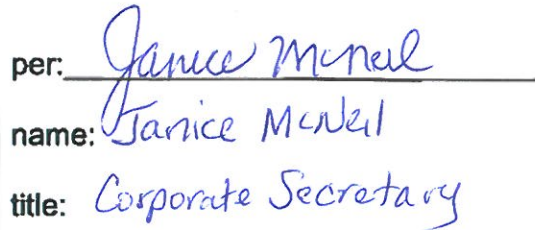 per: Janice McNeil
name: Janice McNeil
title: Corporate Secretary